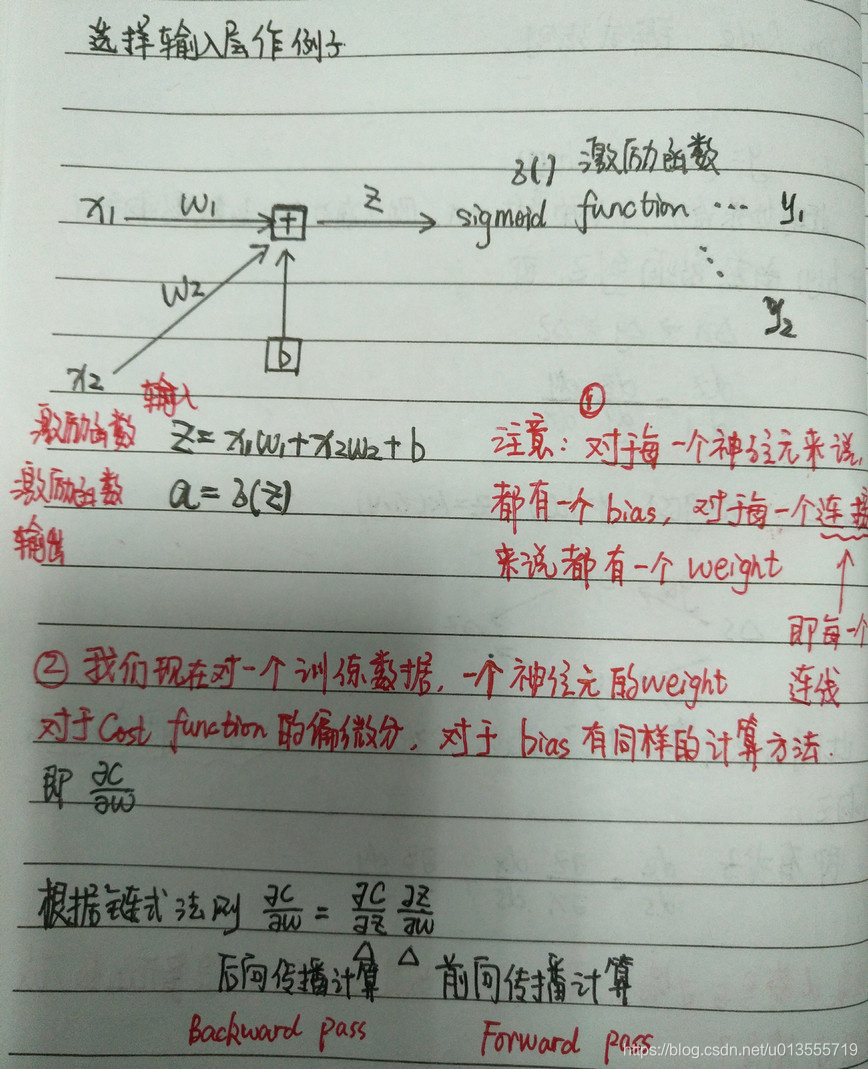 选择输入层作例子
δ() 激励函数
x₁ w₁ + z sigmoid function ⋯ y₁
w₂ ⋱
y₂
b
x₂
输入
①
激励函数 z = x₁w₁ + x₂w₂ + b 注意：对于每一个神经元来说,
激励函数 a = δ(z) 都有一个 bias, 对于每一个连接
输出 来说都有一个 weight
即每一个
② 我们现在对一个训练数据, 一个神经元的weight 连线
对于Cost function 的偏微分, 对于 bias 有同样的计算方法.
即 ∂C/∂w
根据链式法则 ∂C/∂w = ∂C/∂z ∂z/∂w
后向传播计算 △ △ 前向传播计算
Backward pass Forward pass
https://blog.csdn.net/u013555719